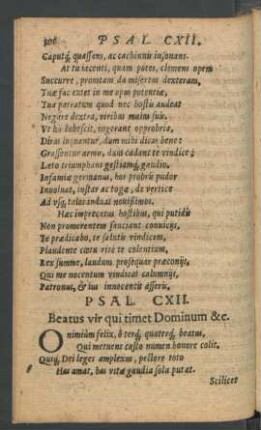 306 PSAL CXII.
Caputq́; quassens, ac cachinnis insonans.
At tu iacenti, quam potes, clemens opem
Succurre, promtam da misertus dexteram,
Tuæ sic extet in me opus potentiæ,
Tua patratum quod nec hostis audeat
Negare dextra, viribus maius suis.
Vt his lubescit, ingerant opprobria,
Diras loquantur, dum mihi dicas bene:
Grassentur armis, dum cadant te vindice;
Læto triumphans gestiamq́; gaudio,
Infamiæ germanus, hos probri pudor
Inuoluat, instar ac togæ, de vertice
Ad vsq; talos induat nouissimos.
Hæc imprecatus hostibus, qui putidis
Non promerentem sauciant conuicijs,
Te prædicabo, te salutis vindicem,
Plaudente cœtu rite te colentium,
Rex summe, laudum prosequar præconijs,
Qui me nocentum vindicat calumnijs,
Patronus, & ius innocentis asserit.
PSAL CXII.
Beatus vir qui timet Dominum &c.
O nimiùm felix, ô terq́; quaterq́; beatus,
Qui metuens casto numen honore colit.
Quiq́; Dei leges amplexus, pectore toto
Has amat, has vitæ gaudia sola putat.
Scilicet